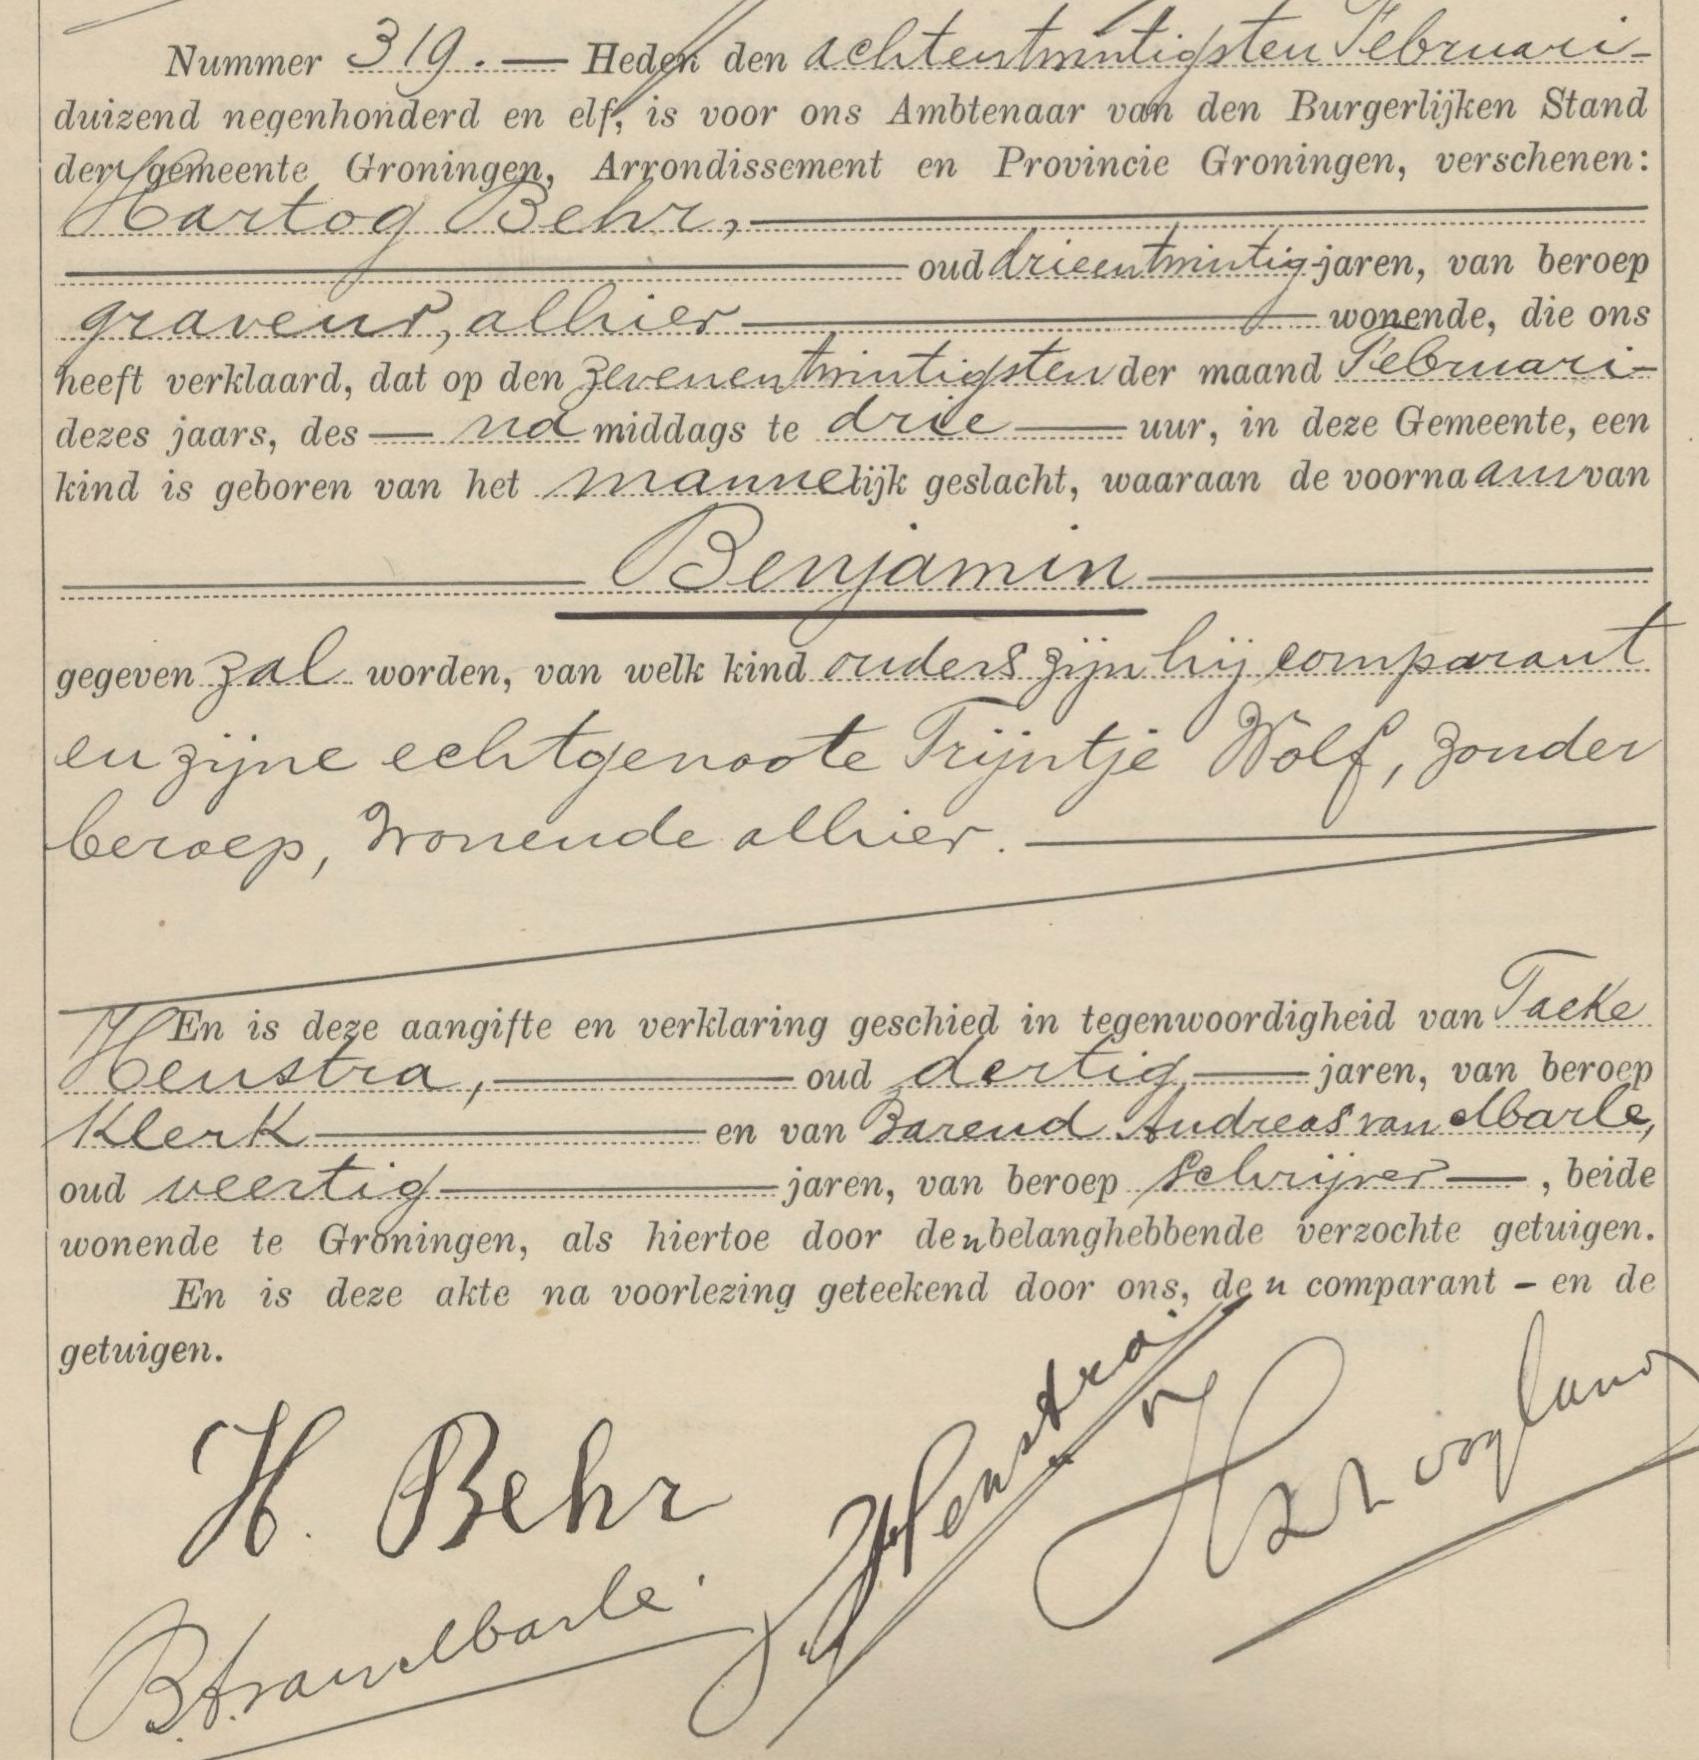 Nummer 319. — Heden den achtentwintigsten Februari
duizend negenhonderd en elf, is voor ons Ambtenaar van den Burgerlijken Stand
der gemeente Groningen, Arrondissement en Provincie Groningen, verschenen:
Hartog Behr,
oud drieentwintig jaren, van beroep
graveur, alhier wonende, die ons
heeft verklaard, dat op den zevenentwintigsten der maand Februari
dezes jaars, des na middags te drie uur, in deze Gemeente, een
kind is geboren van het mannelijk geslacht, waaraan de voornaam van
Benjamin
gegeven zal worden, van welk kind ouders zijn hij comparant
en zijne echtgenoote Trijntje Wolf, zonder
beroep, wonende alhier.
En is deze aangifte en verklaring geschied in tegenwoordigheid van Taeke
Henstra, oud dertig jaren, van beroep
klerk en van Barend Andreas van Marle,
oud veertig jaren, van beroep schrijver, beide
wonende te Groningen, als hiertoe door den belanghebbende verzochte getuigen.
En is deze akte na voorlezing geteekend door ons, den comparant – en de
getuigen.
H. Behr
Henstra
B.A. van Marle.